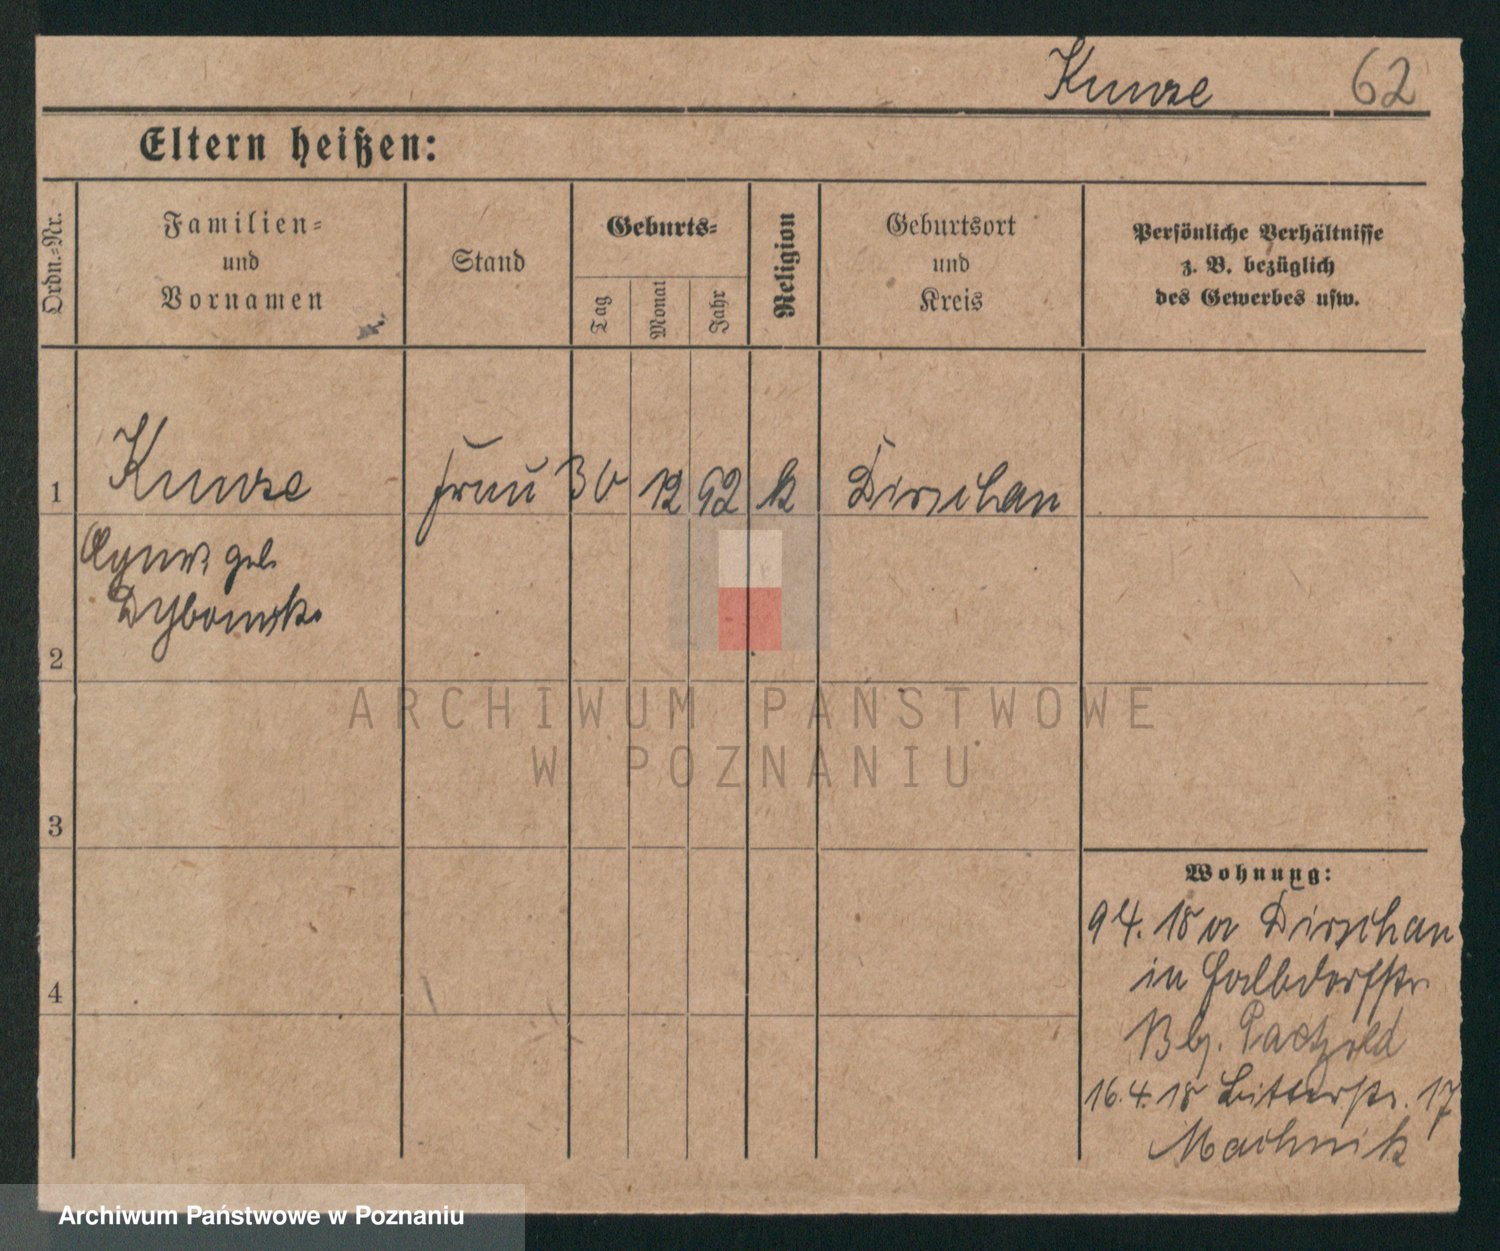 Kunze 62
Eltern heißen:
Ordn.=Nr.
Familien=
und
Vornamen
Stand
Geburts=
Tag
Monat
Jahr
Religion
Geburtsort
und
Kreis
Persönliche Verhältnisse
z. B. bezüglich
des Gewerbes usw.
1 Kunze Frau 30 12 92 k Dirschau
geb.
Dybowski
2
ARCHIWUM PAŃSTWOWE
W POZNANIU
3
4
Wohnung:
9 4. 18 Dirschau
in
Paetzold
16. 4. 18 Ritterstr. 17
Machnik
Archiwum Państwowe w Poznaniu